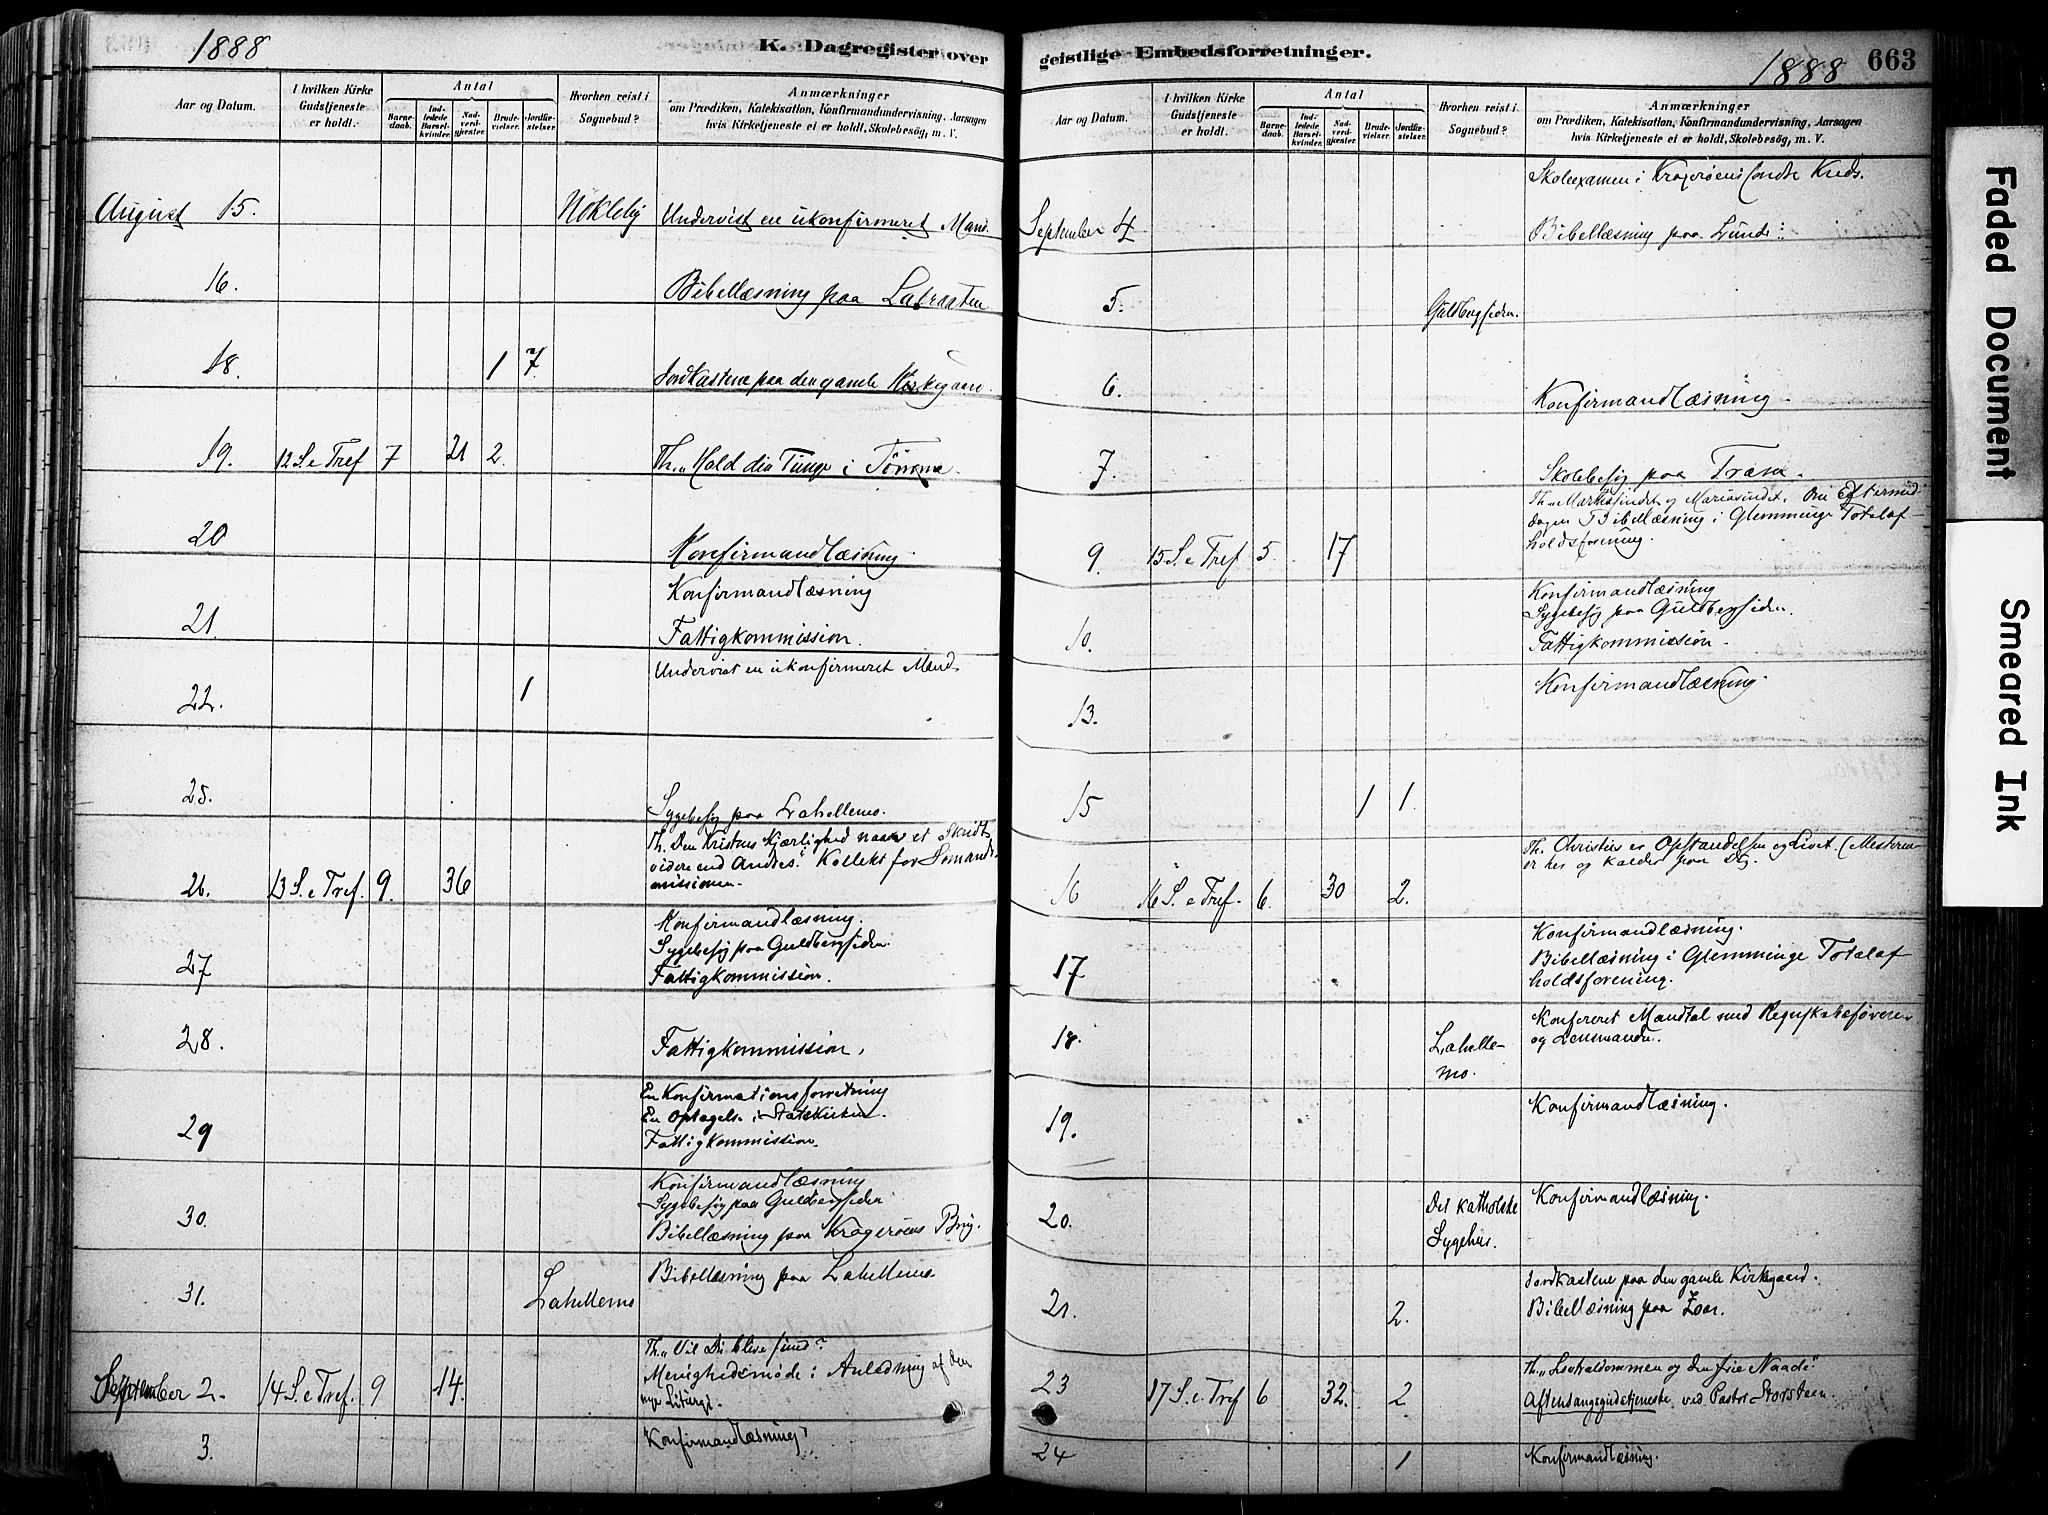 1888
K. Dagregister over
geistlige Embedsforretninger.
1888
663
Aar og Datum.
I hvilken Kirke Gudstjeneste er holdt.
Antal
Barnedaab.
Indledede Barselkvinder.
Nadverdgjester.
Brudevielser.
Jordfæstelser.
Hvorhen reist i Sognebud?
Anmærkninger
om Prædiken, Katekisation, Konfirmandundervisning, Aarsagen
hvis Kirketjeneste ei er holdt, Skolebesög, m. V.
August 15. Nokleby Undervist en ukonfirmeret Mand.
16. Bibellæsning paa
18. 1 7. Jordkastene paa den gamle Kirkegaard.
19. 12 S. e Tref 7 21 2. Th. "Hold din Tunge i Tömme.
20 Konfirmandlæsning.
21 Konfirmandlæsning
Fattigkommission.
22. 1 Undervist en ukonfirmeret Mand.
25. Sygebesøg paa Lahellemo.
26. 13 S. e Tref. 9. 36 Th. Den Kristnes Kjærlighed naar et Skridt
videre end Andres. Kollekt for Sömands-
missionen.
27 Konfirmandlæsning.
Sygebesøg paa Guldbergsiden.
Fattigkommission.
28. Fattigkommission.
29 En Konfirmationsforretning
En Optagelse i Statskirken.
Fattigkommission.
30. Konfirmandlæsning
Sygebesøg paa Guldbergsiden
Bibellæsning paa Krogeröens Brug.
31. Lahellemo Bibellæsning paa Lahellemo
September 2. 14 S. e Tref. 9 14. Th. "Vil Du blive sund?
Menighedsmöde i Anledning af den
nye Liturgi.
3. Konfirmandlæsning
Aar og Datum.
I hvilken Kirke Gudstjeneste er holdt.
Antal
Barnedaab.
Indledede Barselkvinder.
Nadverdgjester.
Brudevielser.
Jordfæstelser.
Hvorhen reist i Sognebud?
Anmærkninger
om Prædiken, Katekisation, Konfirmandundervisning, Aarsagen
hvis Kirketjeneste ei er holdt, Skolebesög, m. V.
Skoleexamen i Krogeröens söndre Kreds.
September 4 Bibellæsning paa Lunde
5. Guldbergsiden.
6. Konfirmandlæsning.
7. Skolebesøg paa Trara.
9. 15 S. e Tref 5. 17 Th. "Marthasindet og Mariasindet. Om Eftermid-
dagen Bibellæsning i Glemminge Totalaf-
holdsforening.
10. Konfirmandlæsning
Sygebesøg paa Guldbergsiden.
Fattigkommission.
13. Konfirmandlæsning.
15 1 1.
16 16 S. e Tref. 6. 30 2. Th. Christus er Opstandelsen og Livet. (Mesteren
er her og kalder paa Dig.
17 Konfirmandlæsning.
Bibellæsning i Glemminge Totalaf
holdsforening.
18. Lahelle-
mo. Konfereret Mandtal med Regnskabsföreren
og Lensmanden.
19. Konfirmandlæsning.
20. Det katholske
Sygehus. Konfirmandlæsning.
21. 2. Jordkastene paa den gamle Kirkegaard.
Bibellæsning paa Zoar.
23 17 S. e. Tref 6 32. 2 Th. og den frie Naade"
Aftensangsgudstjeneste ved Pastor Storsteen.
24 1 Konfirmandlæsning.
Faded Document
Smeared Ink